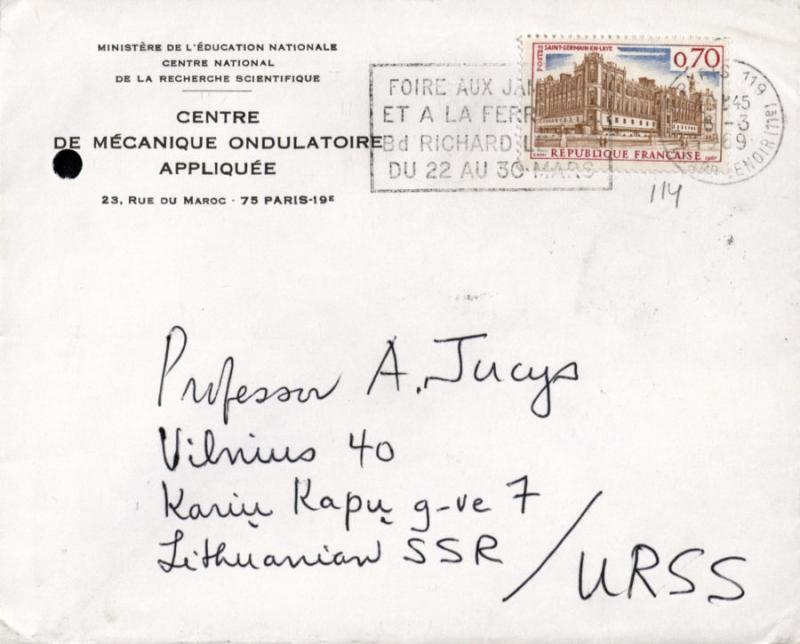 MINISTÈRE DE L'ÉDUCATION NATIONALE
CENTRE NATIONAL
DE LA RECHERCHE SCIENTIFIQUE
CENTRE
DE MÉCANIQUE ONDULATOIRE
APPLIQUÉE
23, RUE DU MAROC · 75 PARIS-19E
FOIRE AUX JAM
ET A LA FERR
Bd RICHARD LE
DU 22 AU 30 MARS
POSTES SAINT-GERMAIN-EN-LAYE
0,70
RÉPUBLIQUE FRANÇAISE 1967
119
45
-3
69
LENOIR (11e)
114
Professor A. Jucys
Vilnius 40
Karių Kapų g-ve 7
Lithuanian SSR / URSS